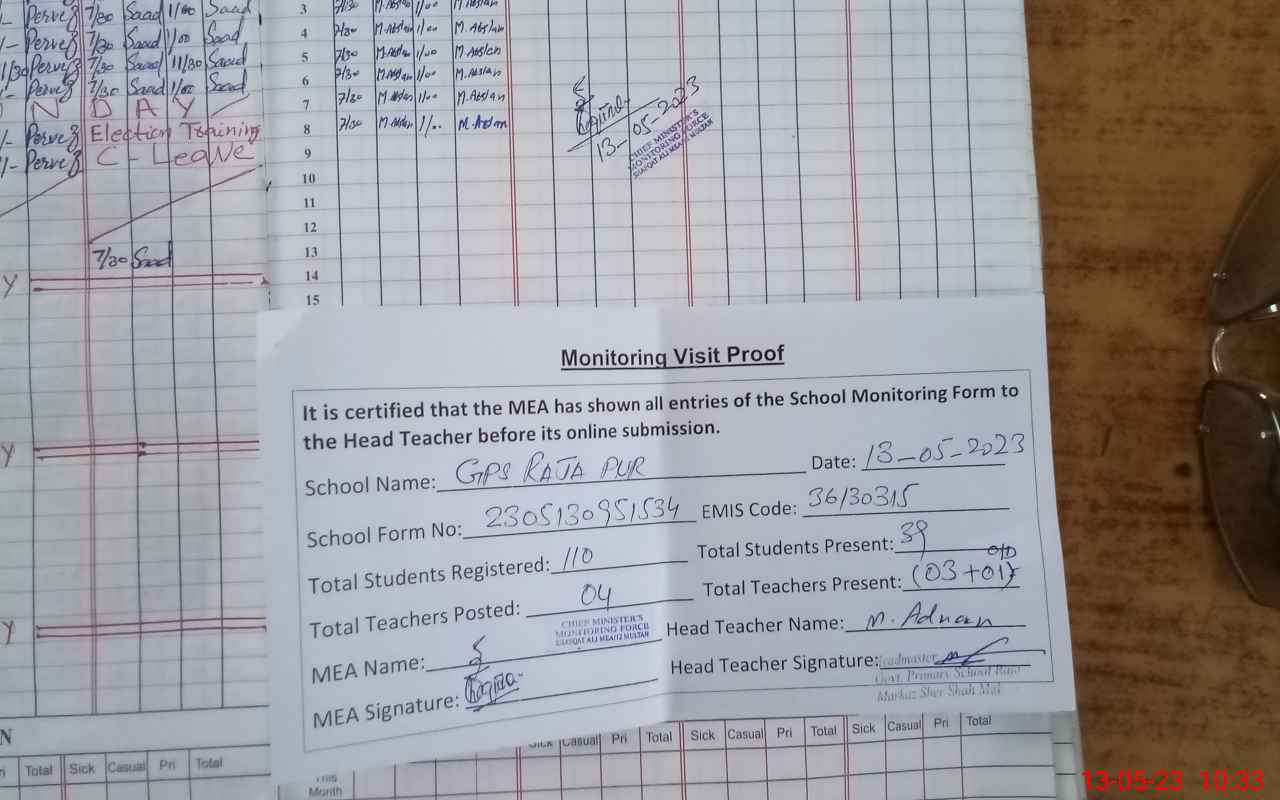 Pervez 7/30 Saad 1/00 Saad
Pervez 7/30 Saad 1/00 Saad
1/30 Pervez 7/30 Saad 11/30 Saad
Pervez 7/30 Saad 1/00 Saad
N D A Y
Pervez Election Training
Pervez C-Leave
7/30 Saad
Y
Y
Y
3 7/30 1/00
4 7/30 1/00
5 7/30 1/00
6 7/30 1/00
7 7/30 1/00
8 7/30 1/00
9
10
11
12
13
14
15
13-05-2023
CHIEF MINISTER'S
MONITORING FORCE
SHAFQAT ALI MEA/12 MULTAN
Monitoring Visit Proof
It is certified that the MEA has shown all entries of the School Monitoring Form to
the Head Teacher before its online submission.
School Name: GPS RAJA PUR Date: 13-05-2023
School Form No: 2305130951534 EMIS Code: 36130315
Total Students Registered: 110 Total Students Present: 39
Total Teachers Posted: 04 Total Teachers Present: (03+01)
MEA Name: CHIEF MINISTER'S
MONITORING FORCE
SHAFQAT ALI MEA/12 MULTAN
Head Teacher Name: M. Adnan
MEA Signature: Head Teacher Signature: Headmaster
Govt. Primary School Raja
Markaz Sher Shah Mul
N
Total Sick Casual Pri Total
Sick Casual Pri Total Sick Casual Pri Total Sick Casual Pri Total
This
Month
13-05-23 10:33